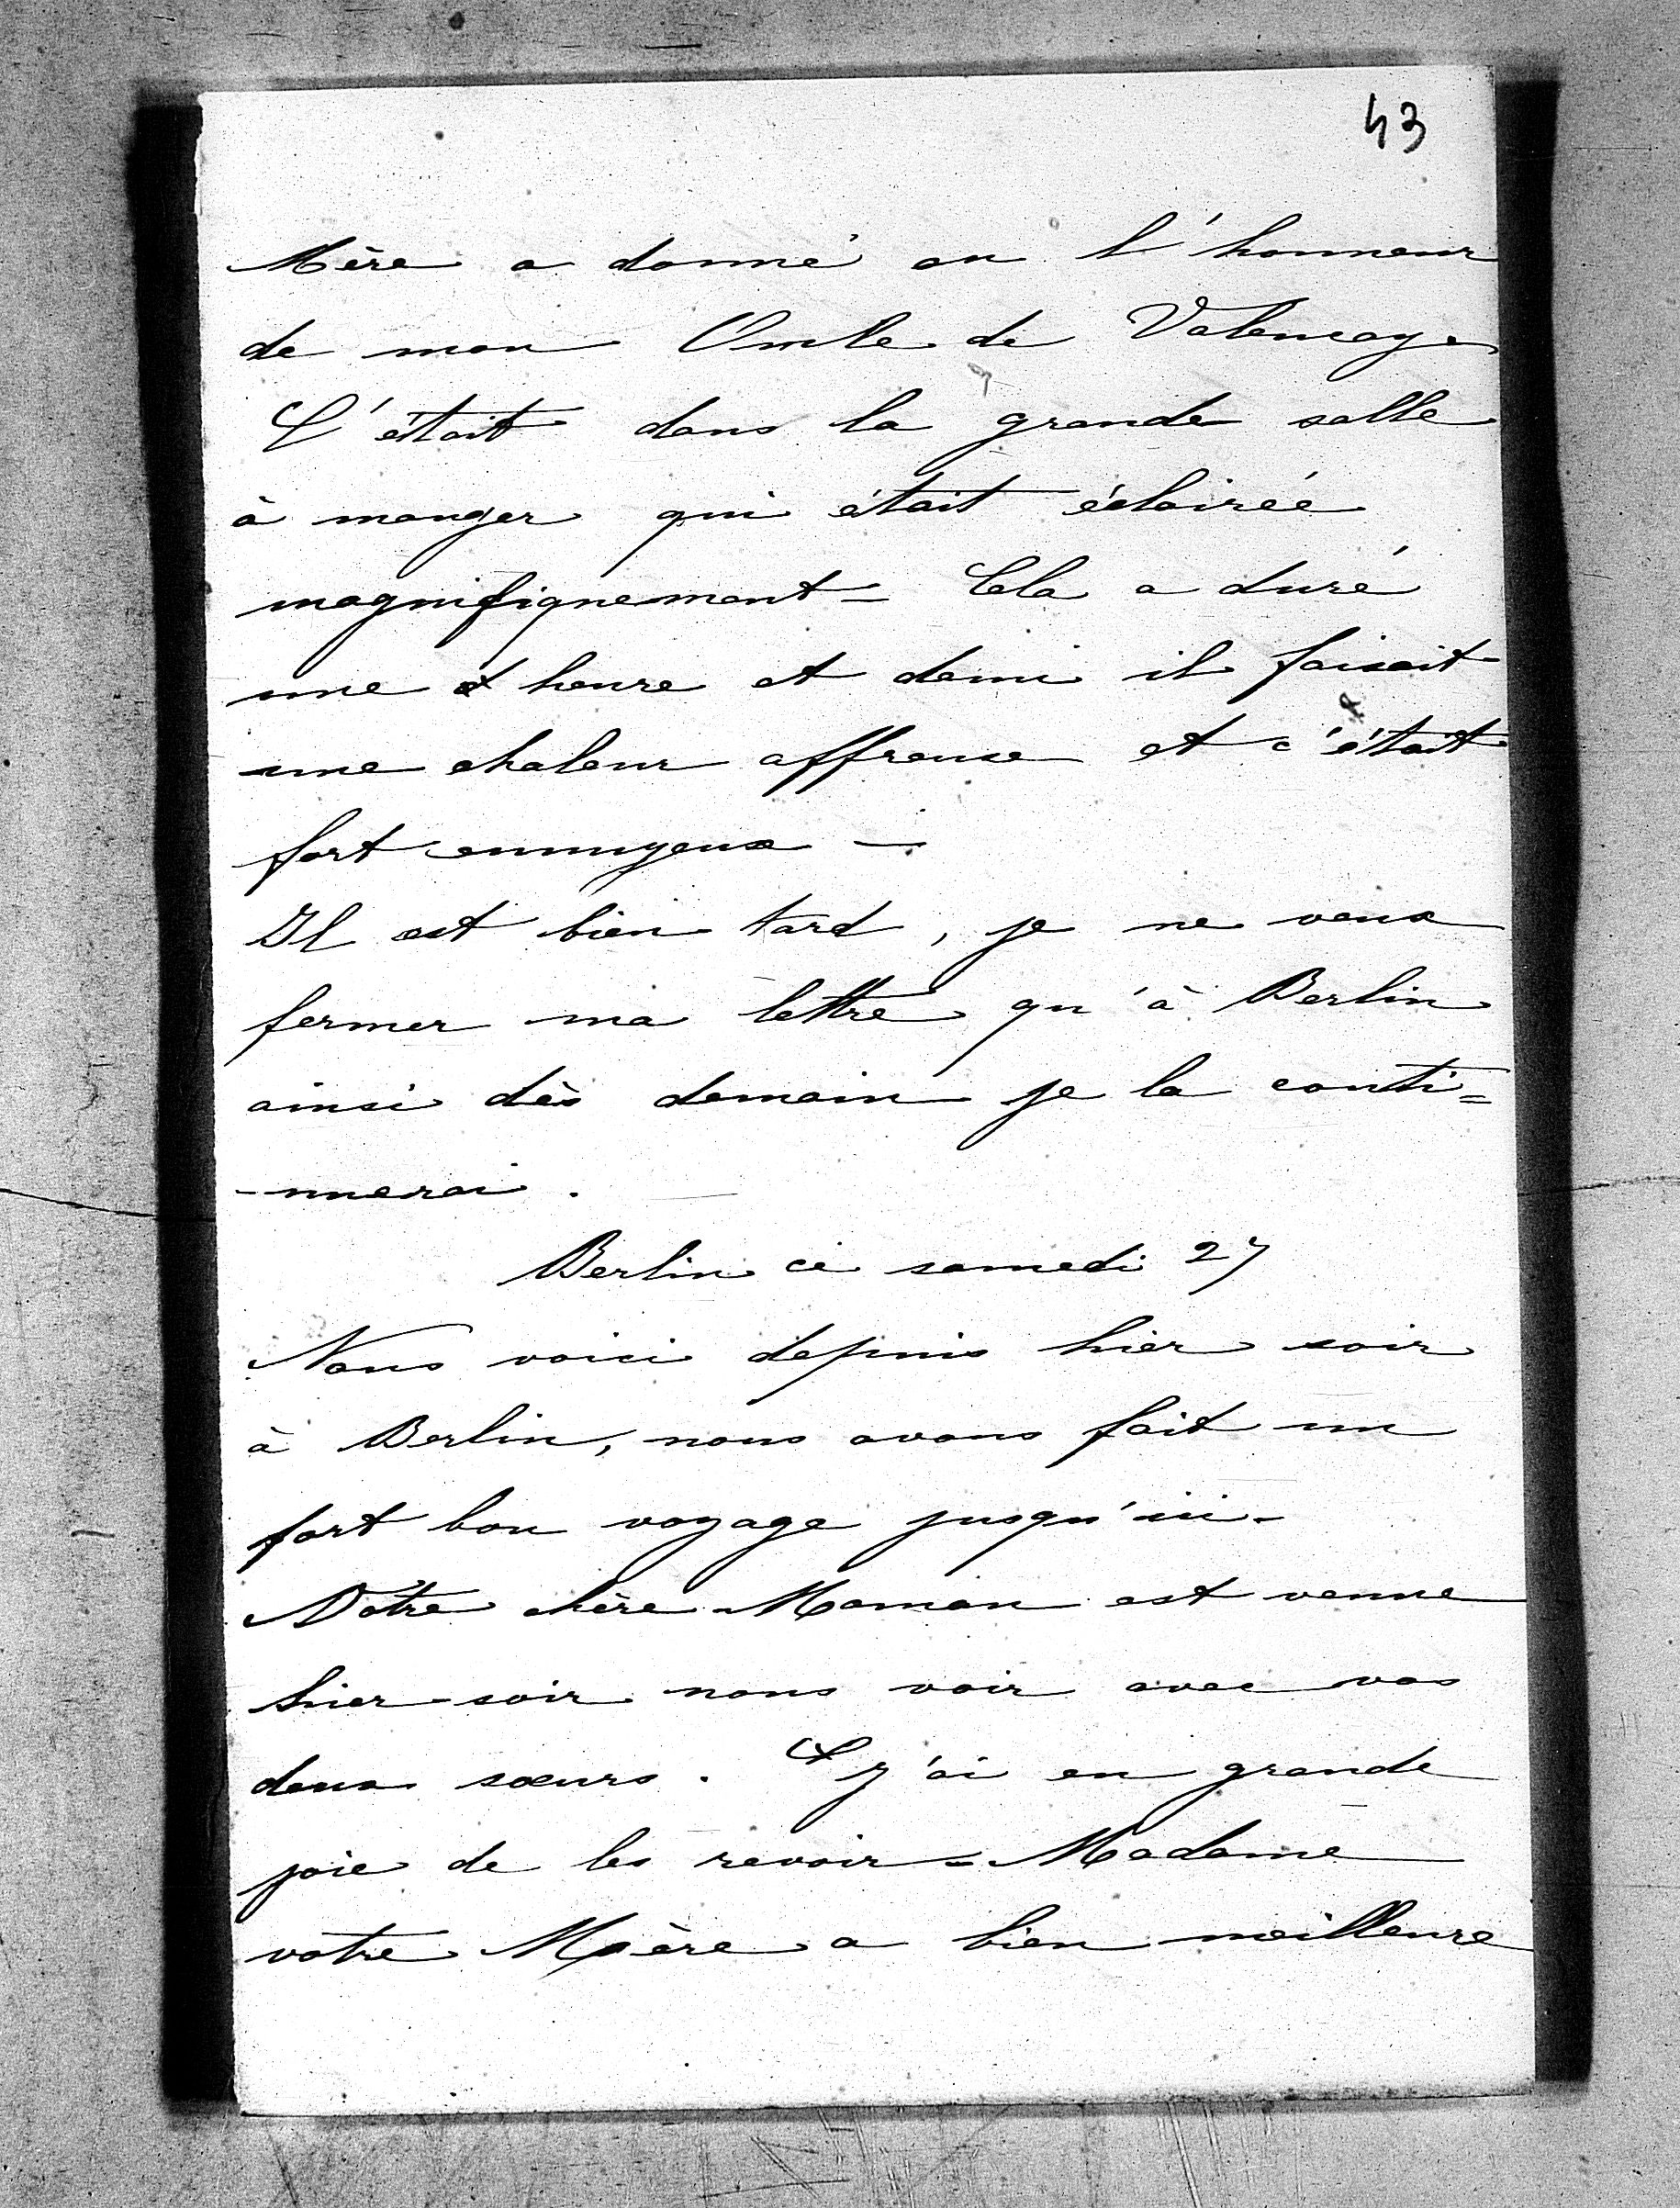 43
Mère a donné en l'honneur
de mon Oncle de Valençay.
C'était dans la grande salle
à manger qui était éclairée
magnifiquement = Cela a duré
une heure et demi il faisait
une chaleur affreuse et c'était
fort ennuyeux -
Il est bien tard, je ne veux
fermer ma lettre qu'à Berlin
ainsi dès demain je la conti=
-nuerai.
Berlin ce samedi 27
Nous voici depuis hier soir
à Berlin, nous avons fait un
fort bon voyage jusqu'ici -
Votre chère Maman est venue
hier soir nous voir avec vos
deux sœurs. J'ai eu grande
joie de les revoir = Madame
votre Mère a bien meilleure